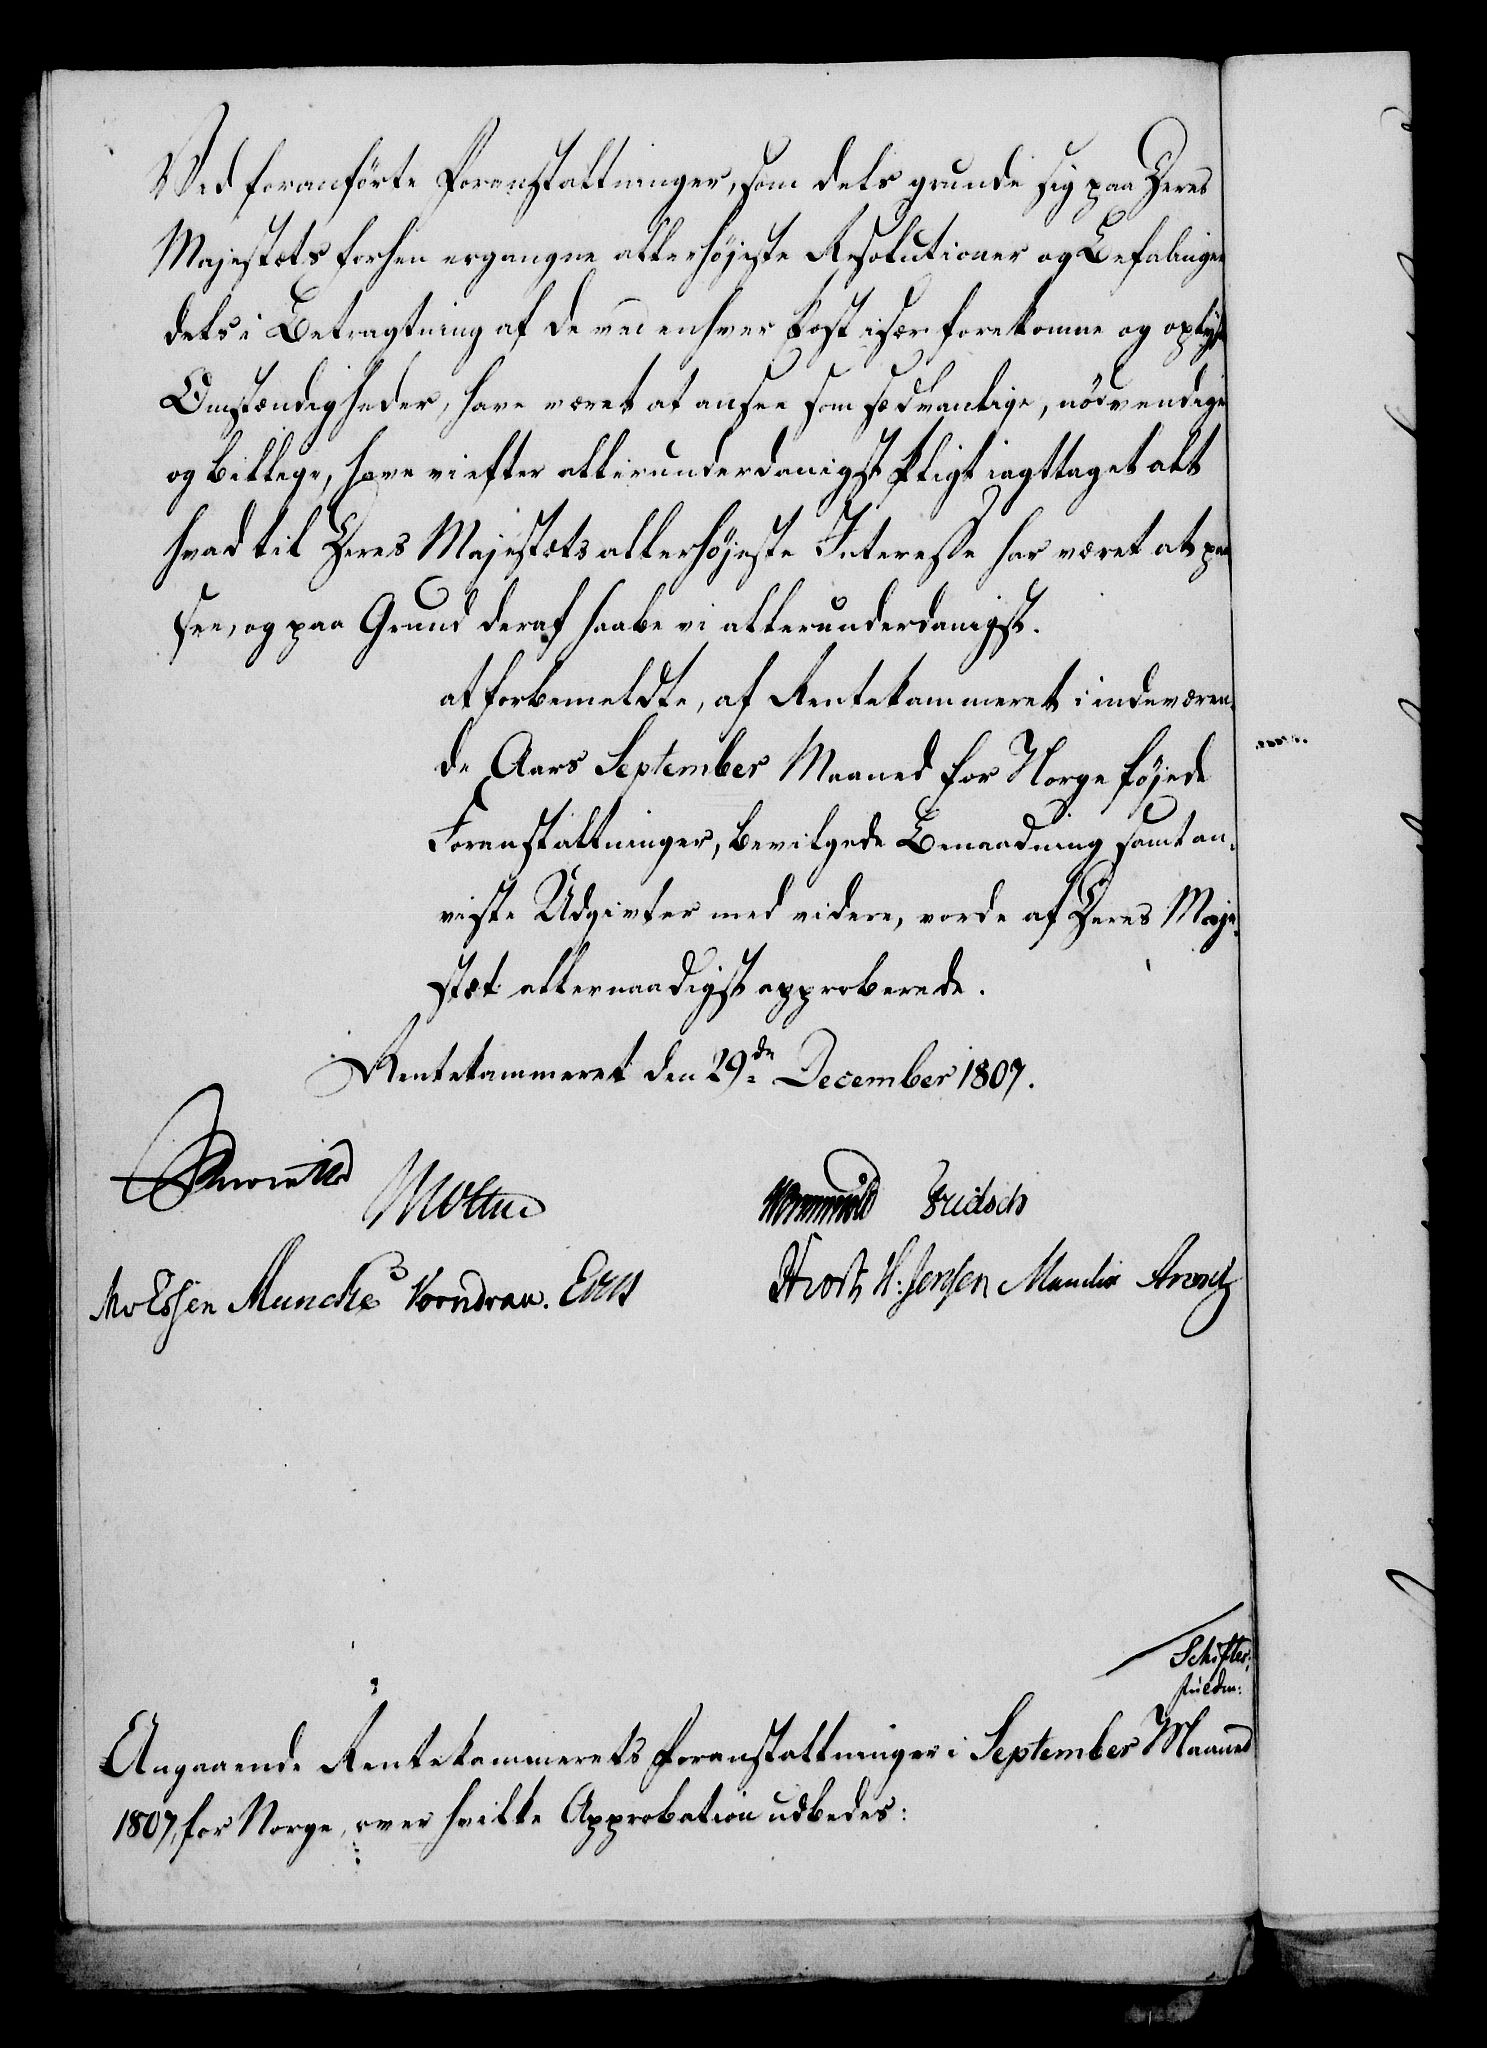 Ved foranförte Foranstaltninger, som dels grunde sig paa Deres
Majestæts forhen ergangne allerhöjeste Resolutioner og Befalinger
dels i Betragtning af de ved enhver Post især forekomne og oplyste
Omstændigheder, have været at ansee som sædvanlige, nödvendige
og billege, have vi efter allerunderdanigst Pligt iagttaget alt
hvad til Deres Majestæts allerhöjeste Interesse har været at paa
see, og paa Grund deraf haabe vi allerunderdanigst.
at forbemeldte, af Rentekammeret i indeværen¬
de Aars September Maaned for Norge föjede
Foranstaltninger, bevilgede Benaadning samt an¬
viste Udgivter med videre, vorde af Deres Maje¬
stæt allernaadigst approberede.
Rentekammeret den 29de December 1807.
Moltke
Wormskiold Fridsch
MvEssen Muncke Vorndran.
H. Jensen Arentz
Schifter:
Angaaende Rentekammerets Foranstaltninger i September Maaned
1807, for Norge, over hvilke Approbation udbedes: